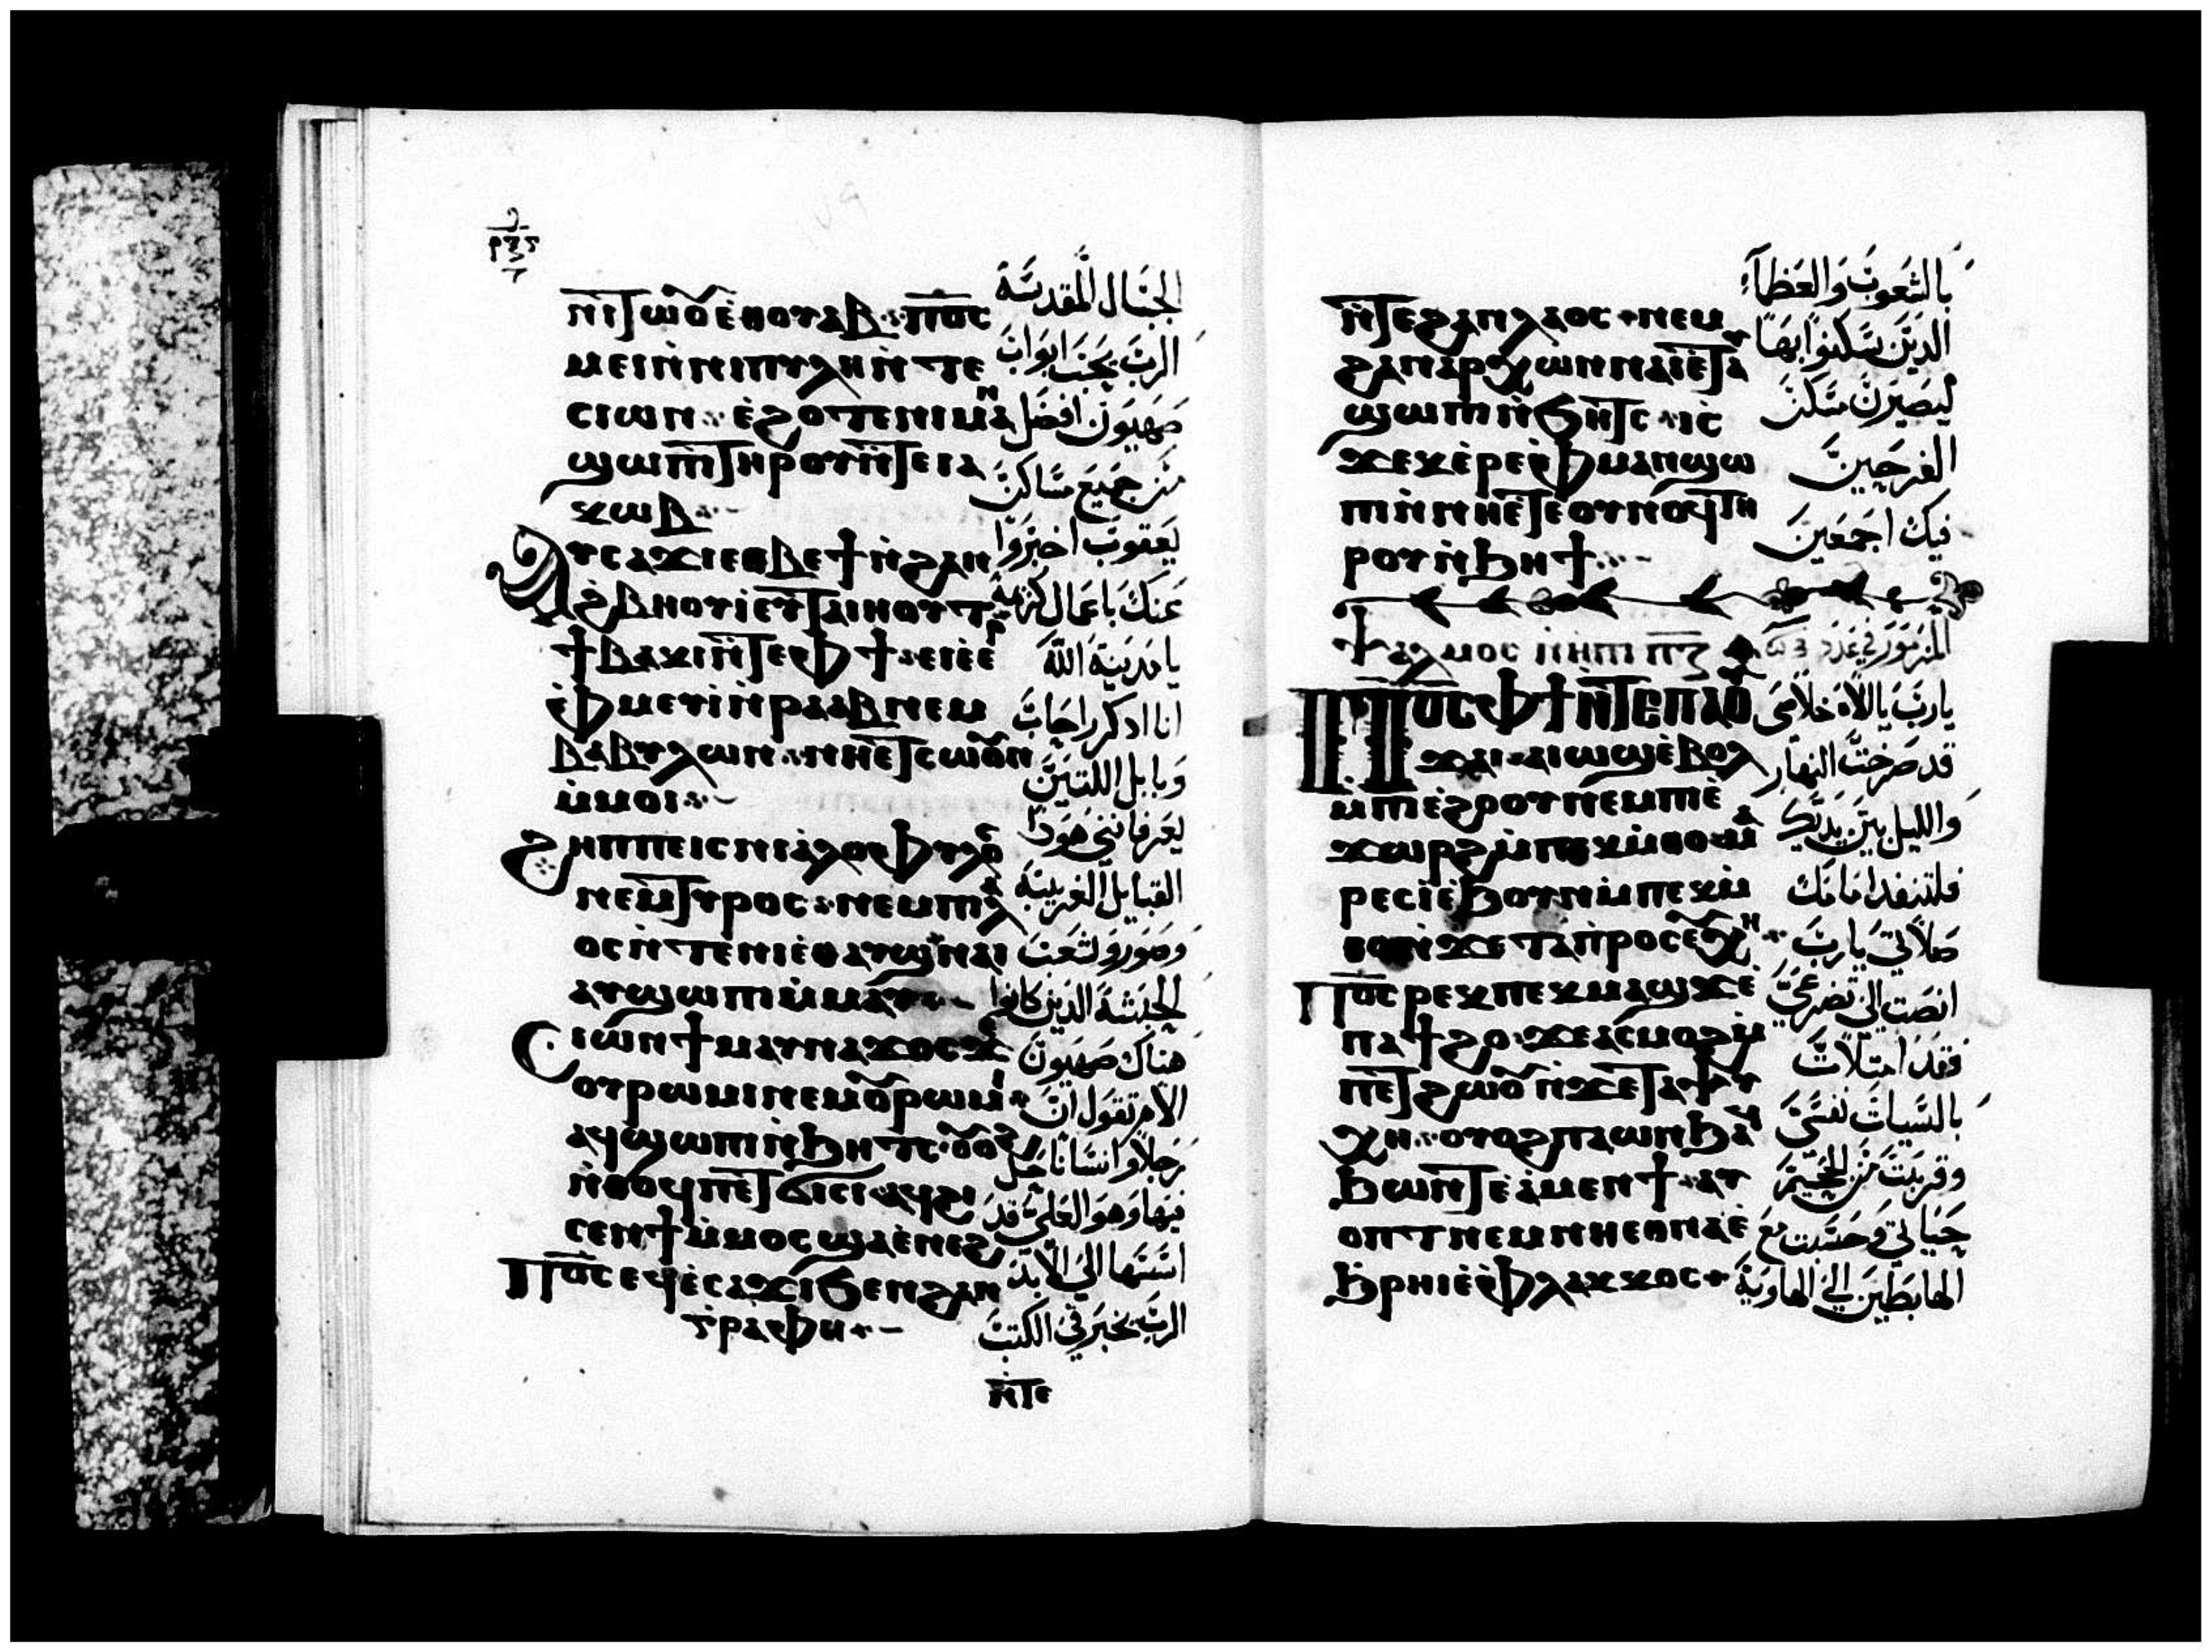 ⲛⲓⲧⲱⲟⲩ ⲉⲑⲟⲩⲁⲃ ⲡ̅ⲟ̅ⲥ̅
ⲙⲉⲓ ⲛ̀ⲛⲓⲡⲩⲗⲏ ⲛ̀ⲧⲉ
ⲥⲓⲱⲛ ⲉ̀ϩⲟⲧⲉ ⲛⲓⲙⲁⲛ
ϣⲱⲡⲓ ⲧⲏⲣⲟⲩ ⲛ̀ⲧⲉ ⲓⲁ
ⲕⲱⲃ
ⲁⲩⲥⲁϫⲓ ⲉⲑⲃⲉϯ ⲛ̀ϩⲁⲛ
ϩⲃⲏⲟⲩⲓ ⲉⲩⲧⲁⲓⲏⲟⲩⲧ
ϯⲃⲁⲕⲓ ⲛ̀ⲧⲉ ⲫϯ ⲉⲓⲉ̀ⲉⲣ
ⲉ̀ⲫⲙⲉⲩⲓ̀ ⲛ̀ⲣⲁⲁⲃ ⲛⲉⲙ
ⲃⲁⲃⲩⲗⲱⲛ ⲛⲏⲉⲧⲥⲱⲟⲩⲛ
ⲙ̀ⲙⲟⲓ
ϩⲏⲡⲡⲉ ⲓⲥ ⲛⲓⲁ̀ⲗⲗⲟⲫⲩⲗⲟⲥ
ⲛⲉⲙ ⲧⲩⲣⲟⲥ ⲛⲉⲙ ⲡⲓⲗⲁ
ⲟⲥ ⲛ̀ⲧⲉ ⲛⲓⲉ̀ⲑⲁⲩϣ ⲛⲁⲓ
ⲁⲩϣⲱⲡⲓ ⲙ̀ⲙⲁⲩ
ⲥⲓⲱⲛ ϯⲙⲁⲩ ⲛⲁϫⲟⲥ ϫⲉ
ⲟⲩⲣⲱⲙⲓ ⲛⲉⲙ ⲟⲩⲣⲱⲙⲓ
ⲁϥϣⲱⲡⲓ ⲛ̀ϧⲏⲧⲥ ⲟⲩⲟϩ
ⲛ̀ⲑⲟϥ ⲡⲉⲧϭⲟⲥⲓ ⲁϥϩⲓ
ⲥⲉⲛϯ ⲙ̀ⲙⲟⲥ ϣⲁ ⲉ̀ⲛⲉϩ
ⲡ̅ⲟ̅ⲥ̅ ⲉϥⲉ̀ⲥⲁϫⲓ ϧⲉⲛ ϩⲁⲛ
ⲅ̀ⲣⲁⲫⲏ
ⲛ̀ⲧⲉ
الجبال المقدسة
الرب يحب ابواب
صهيون افضل
من جميع مساكن
يعقوب اخبروا
عنك باعمال كريمة
يا مدينة الله
انا اذكر راحاب
وبابل اللتين
يعرفانني هوذا
القبايل الغريبة
وصور وشعب
الحبشة الذين كانوا
هناك صهيون
الام تقول ان
رجلا وانسانا حل
فيها وهو العلي قد
اسسها الي الابد
الرب يخبر في الكتب
ⲛ̀ⲧⲉ ϩⲁⲛⲗⲁⲟⲥ ⲛⲉⲙ
ϩⲁⲛⲁⲣⲭⲱⲛ ⲛⲁⲓ ⲉ̀ⲧⲁⲩ
ϣⲱⲡⲓ ⲛ̀ϧⲏⲧⲥ ⲓⲥ
ϫⲉⲕ ⲉ̀ⲣⲉ ⲫⲙⲁⲛϣⲱ
ⲡⲓ ⲛ̀ⲛⲏⲉⲧⲉⲟⲩⲛⲟϥ ⲧⲏ
ⲣⲟⲩ ⲛ̀ϧⲏϯ
ⲯⲁⲗⲙⲟⲥ ⲡ̅ⲍ̅
ⲡ̅ⲟ̅ⲥ̅ ⲫϯ ⲛ̀ⲧⲉ ⲡⲁⲟⲩ
ϫⲁⲓ ⲁⲓⲱϣ ⲉ̀ⲃⲟⲗ
ⲙ̀ⲡⲓⲉ̀ϩⲟⲟⲩ ⲛⲉⲙ ⲡⲓⲉ̀
ϫⲱⲣϩ ⲙ̀ⲡⲉⲕⲙ̀ⲑⲟ ⲙⲁ
ⲣⲉⲥⲓ̀ ⲉ̀ϧⲟⲩⲛ ⲙ̀ⲡⲉⲕⲙ̀
ⲑⲟ ⲛ̀ϫⲉ ⲧⲁⲡⲣⲟⲥⲉⲩⲭⲏ
ⲡ̅ⲟ̅ⲥ̅ ⲣⲉⲕ ⲡⲉⲕⲙⲁϣϫ ⲉ̀
ⲡⲁϯϩⲟ ϫⲉ ⲁⲥⲙⲟϩ ⲙ̀
ⲡⲉⲧϩⲱⲟⲩ ⲛ̀ϫⲉ ⲧⲁⲯⲩ
ⲭⲏ ⲟⲩⲟϩ ⲡⲁⲱⲛϧ ⲁϥ
ϧⲱⲛⲧ ⲉ̀ⲁⲙⲉⲛϯ ⲁⲩ
ⲟⲡⲧ ⲛⲉⲙ ⲛⲏⲉⲑⲛⲁ ⲉ̀
ϧⲣⲏⲓ ⲉ̀ⲫⲗⲁⲕⲕⲟⲥ
بالشعوب والعظمآء
الذين سكنوا بها
ليصيرن مسكن
الفرحين
فيك اجمعين
المزمور في عدد
يا رب يا الاه خلاصي
قد صرخت النهار
والليل بين يديك
فلتنفد امامك
صلاتي يا رب
انصت الي تضرعي
فقد امتلات
بالسيات نفسي
وقربت من الجحيم
حياتي وحسبت مع
الهابطين الي الهاوية